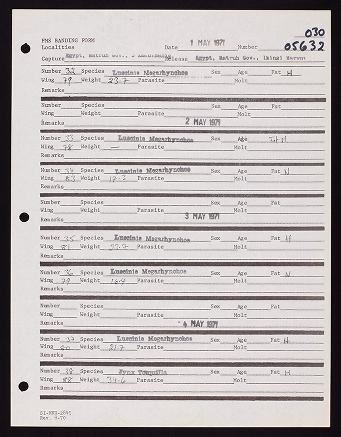 030
PMS BANDING FORM
Localities Date 1 MAY 1971 Number 05632
Capture Egypt, Matruh Gov., Release Egypt, Matruh Gov.,
Number 32 Species Luscinia Megarhynchos Sex Age Fat H
Wing 79 Weight 23.7 Parasite Molt
Remarks
Number Species Sex Age Fat
Wing Weight Parasite Molt
Remarks 2 MAY 1971
Number 33 Species Luscinia Megarhynchos Sex Age Fat H
Wing 78 Weight — Parasite Molt
Remarks
Number 34 Species Luscinia Megarhynchos Sex Age Fat N
Wing 83 Weight Parasite Molt
Remarks
Number Species Sex Age Fat
Wing Weight Parasite Molt
Remarks 3 MAY 1971
Number 35 Species Luscinia Megarhynchos Sex Age Fat H
Wing 81 Weight Parasite Molt
Remarks
Number 36 Species Luscinia Megarhynchos Sex Age Fat N
Wing 79 Weight Parasite Molt
Remarks
Number Species Sex Age Fat
Wing Weight Parasite Molt
Remarks 4 MAY 1971
Number 37 Species Luscinia Megarhynchos Sex Age Fat H
Wing 80 Weight 21.7 Parasite Molt
Remarks
Number 38 Species Jynx Torquilla Sex Age Fat H
Wing 88 Weight 34.6 Parasite Molt
Remarks
Rev. 9-70